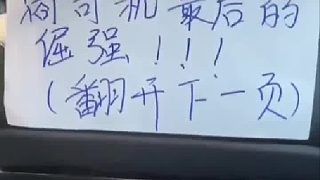 司机最后的
倔强！！！
（翻开下一页）